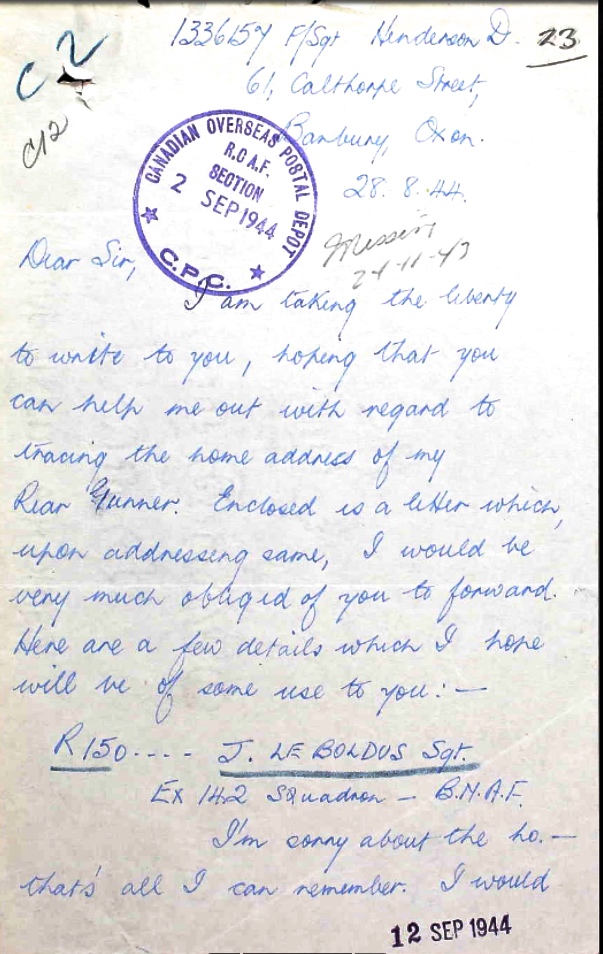 C2
C12
1336157 F/Sgt Henderson D. 23
61, Calthorpe Street,
Banbury, Oxon.
28.8.44.
CANADIAN OVERSEAS POSTAL DEPOT
R.C.A.F.
SECTION
2 SEP 1944
C.P.C.
Missing
24-11-43
Dear Sir,
I am taking the liberty
to write to you, hoping that you
can help me out with regard to
tracing the home address of my
Rear Gunner. Enclosed is a letter which,
upon addressing same, I would be
very much obliged of you to forward.
Here are a few details which I hope
will be of some use to you:—
R150.... J. LE BOLDUS Sgt.
Ex 142 Squadron — B.N.A.F.
I'm sorry about the no.—
that's all I can remember. I would
12 SEP 1944